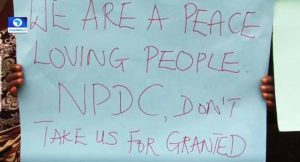 WE ARE A PEACE
LOVING PEOPLE.
NPDC, DON'T
TAKE US FOR GRANTED